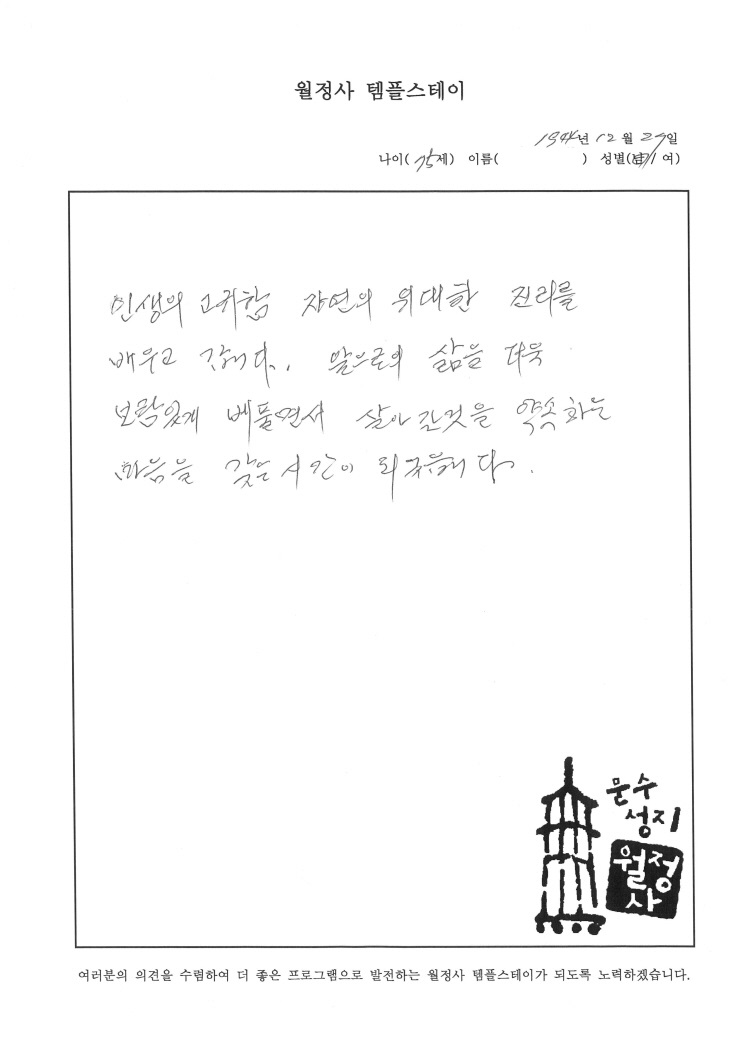 월정사 템플스테이
1944년 12월 27일
나이( 75세) 이름( ) 성별(남/여)
인생의 고귀함 자연의 위대한 진리를
배우고 갑니다. 앞으로의 삶을 더욱
보람있게 베풀면서 살아 갈것을 약속하는
마음을 갖은 시간이 되었습니다.
문수
성지
월정
사
여러분의 의견을 수렴하여 더 좋은 프로그램으로 발전하는 월정사 템플스테이가 되도록 노력하겠습니다.